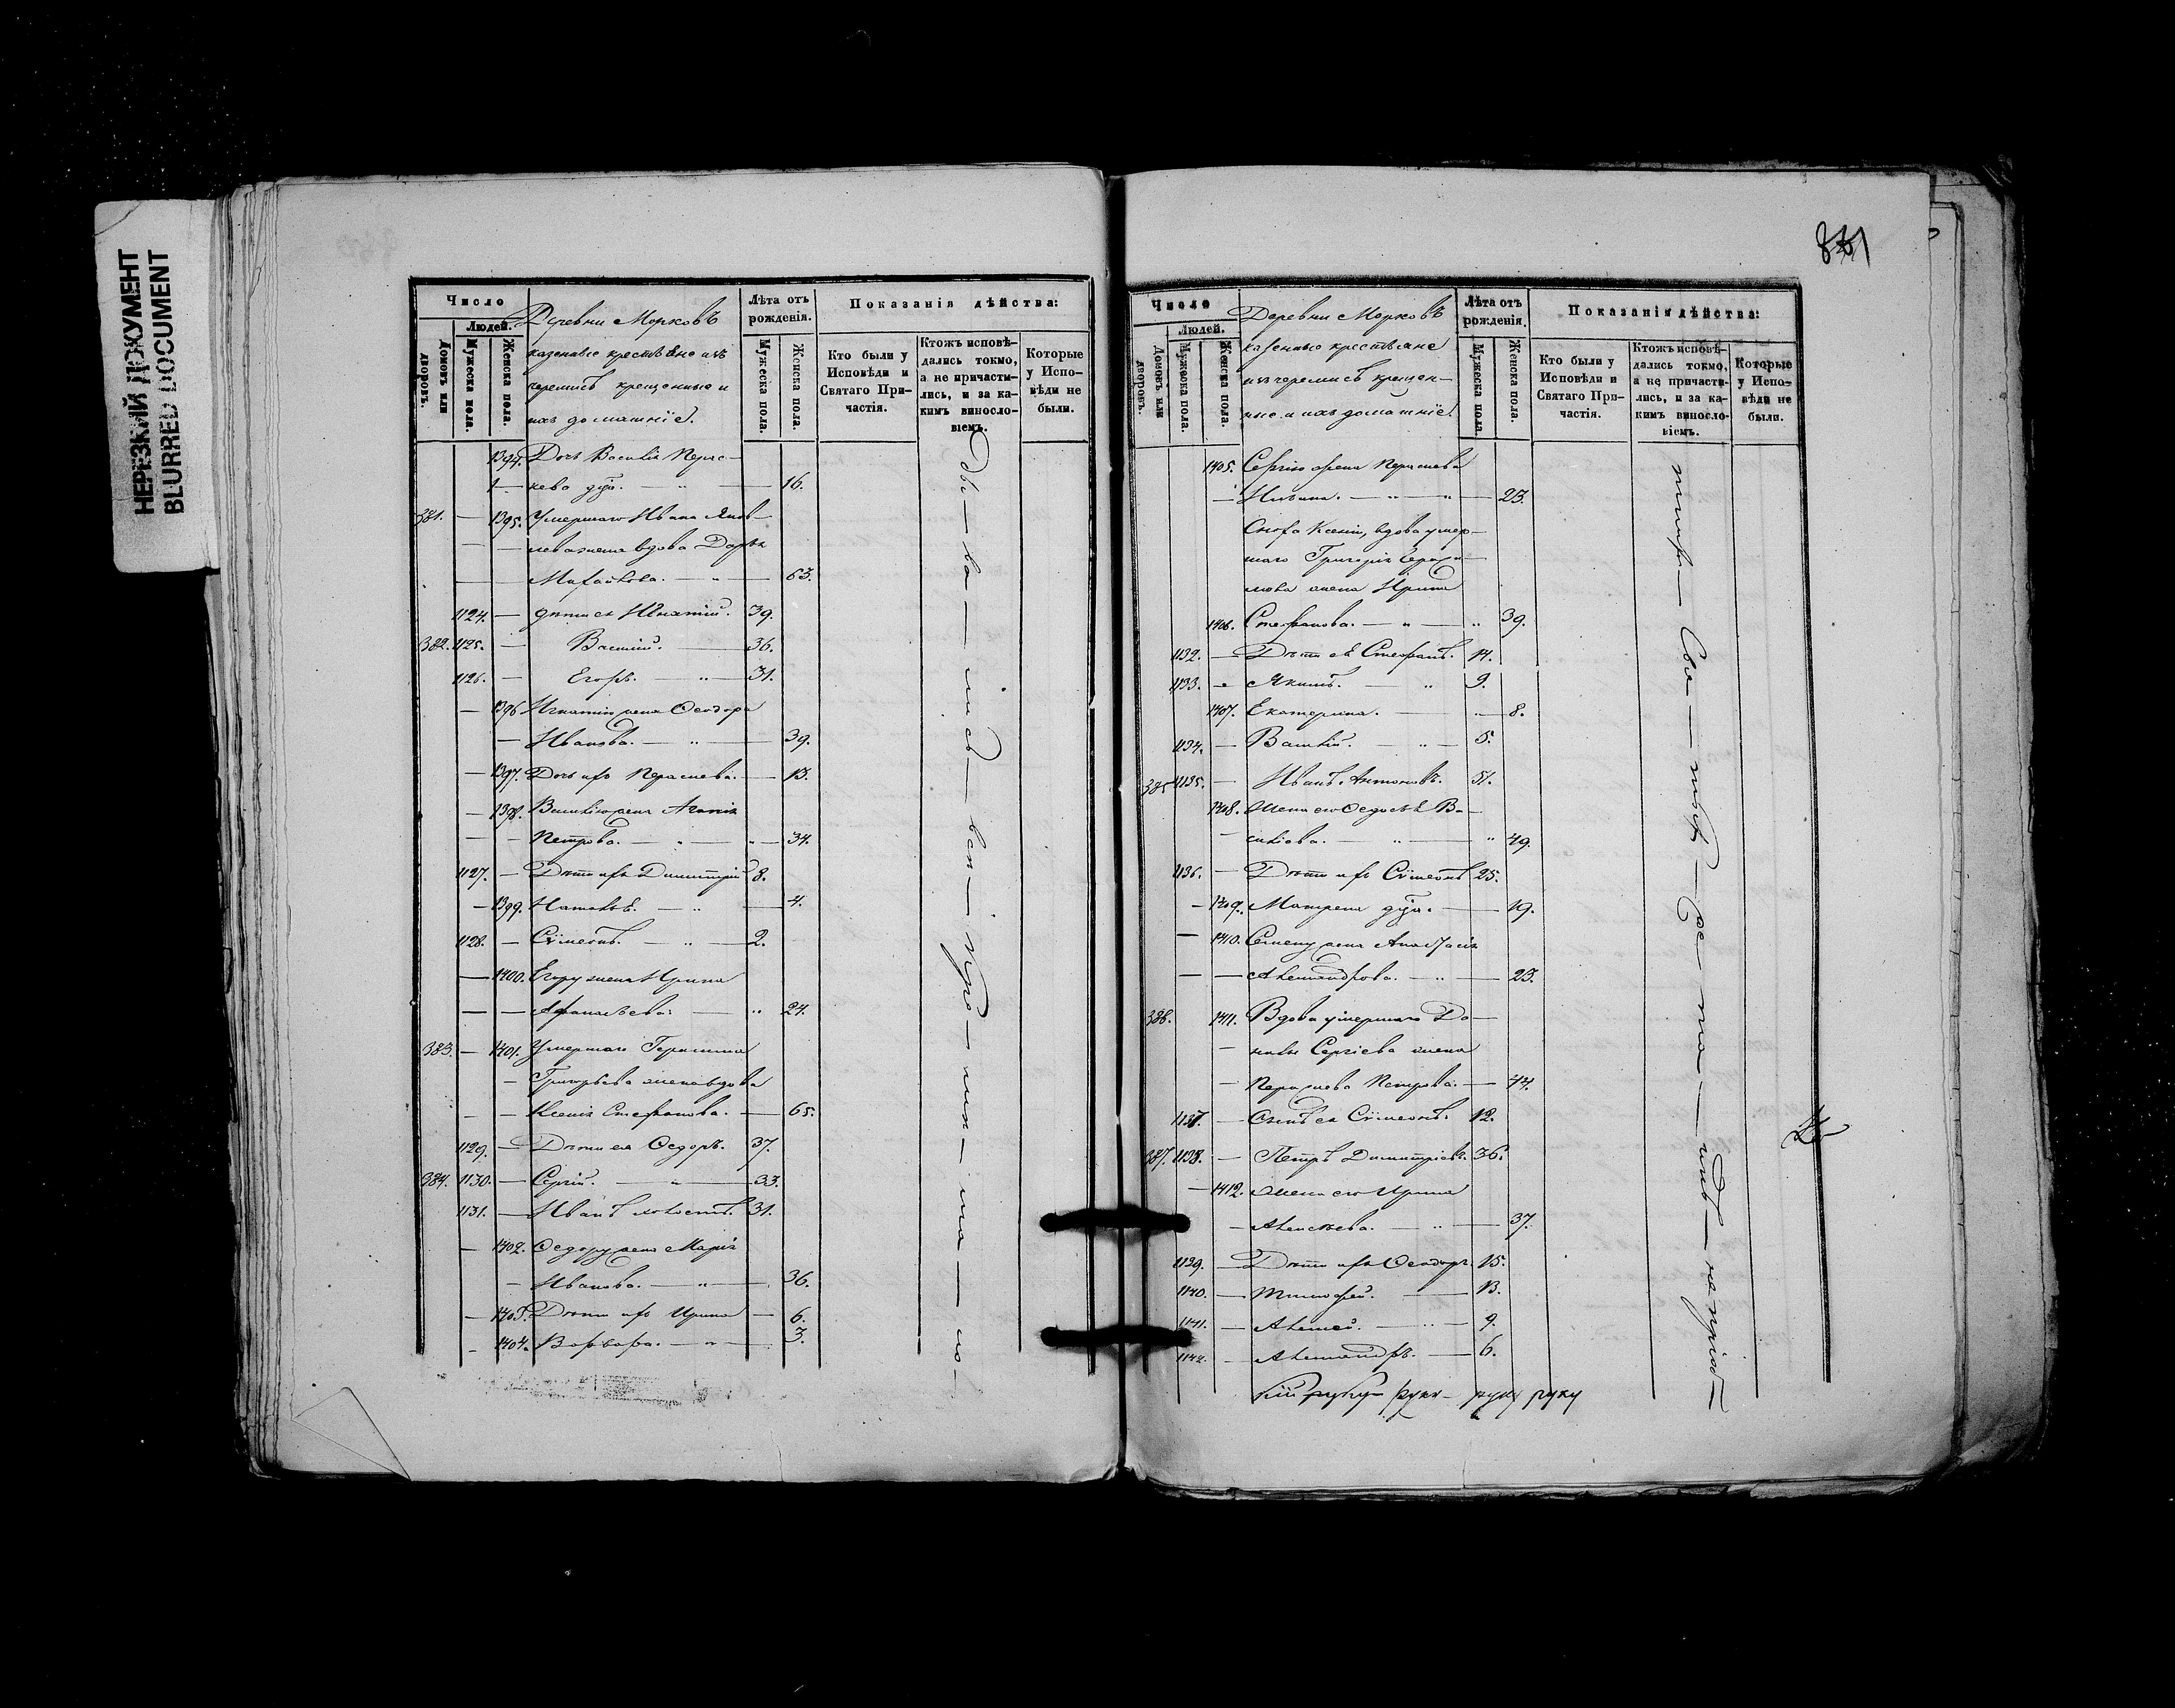 НЕРЕЗКИЙ ДОКУМЕНТ
BLURRED DOCUMENT
Число
Людей.
Домовъ или дворовъ.
Мужеска пола.
Женска пола.
Деревни Морковъ
казенные крестьяне изъ
черемисъ крещенные и
ихъ домашніе.
Лѣта отъ рожденія.
Мужеска пола.
Женска пола.
Показанія дѣйства:
Кто были у
Исповѣди и
Святаго При-
частія.
Ктожъ исповѣ-
дались токмо,
а не причасти-
лись, и за ка-
кимъ винослo-
віемъ.
Которые
у Испо-
вѣди не
были.
1394. Дочь Василія Парас-
кева дѣв. — " — 16.
381. — 1395. Умершаго Ивана Яков-
лева жена вдова Дарья
Михайлова. — " — 63.
1124. — Дѣти ея Игнатій. 39.
382. 1125. — Василій. — 36.
1126. — Егоръ. — " — 31.
— 1396 Игнатію жена Ѳеодора
— Иванова. — " — 39.
— 1397. Дочь ихъ Параскева. — 13.
— 1398. Василію жена Агапія
Петрова. — " — 34.
1127. — Дѣти ихъ Димитрій 8.
— 1399. Наталья. — " — 4.
1128. — Сѵмеонъ. — " — 2.
— 1400. Егору жена Ирина
— Афанасьева. — " 24.
383. — 1401. Умершаго Герасима
— Григорьева жена вдова
— Ксенія Стефанова. — 65.
1129. — Дѣти ея Ѳедоръ. 37.
384. 1130. — Сергій. — " — 33.
1131. — Иванъ холостъ. 31.
— 1402. Ѳедору жена Марія
— Иванова. — " — 36.
— 1403. Дѣти ихъ Ирина — 6.
— 1404. Варвара. — " — 3.
841
Число
Людей.
Домовъ или дворовъ.
Мужеска пола.
Женска пола.
Деревни Морковъ
казенные крестьяне
изъ черемисъ крещен-
ные и ихъ домашніе.
Лѣта отъ рожденія.
Мужеска пола.
Женска пола.
Показанія дѣйства:
Кто были у
Исповѣди и
Святаго При-
частія.
Ктожъ исповѣ-
дались токмо,
а не причасти-
лись, и за ка-
кимъ винослo-
віемъ.
Которые
у Испо-
вѣди не
были.
1405. Сергію жена Параскева
— " — " — 23.
Сноха Ксеніи, вдова умер-
шаго Григорія Гераси-
мова жена Ирина
1406. Стефанова. — " — " 39.
1132. — Дѣти ея Стефанъ. 14.
1133. — Якимъ. — " 9.
1407. Екатерина. — 8.
1134. — Василій. — " — 5.
385 1135. — Иванъ Антоновъ. 51.
1408. Жена его Ѳедосья Ва-
сильева. — " — " 49.
1136. — Дѣти ихъ Сѵмеонъ 25.
— 1409. Матрена дѣв. — 19.
— 1410. Семену жена Анастасія
— — Александрова. — " — 23.
386. 1411. Вдова умершаго Да-
нилы Сергіева жена
— Параскева Петрова. — 44.
1137. — Сынъ ея Сѵмеонъ. 12.
387. 1138. — Петръ Димитріевъ. 36.
— 1412. Жена его Ирина
— Алексѣева. — " — 37.
1139. — Дѣти ихъ Ѳеодоръ 15.
1140. — Тимофей. — 13.
1141. — Алексей. — " — 9.
1142. — Александръ. — 6.
руку руку